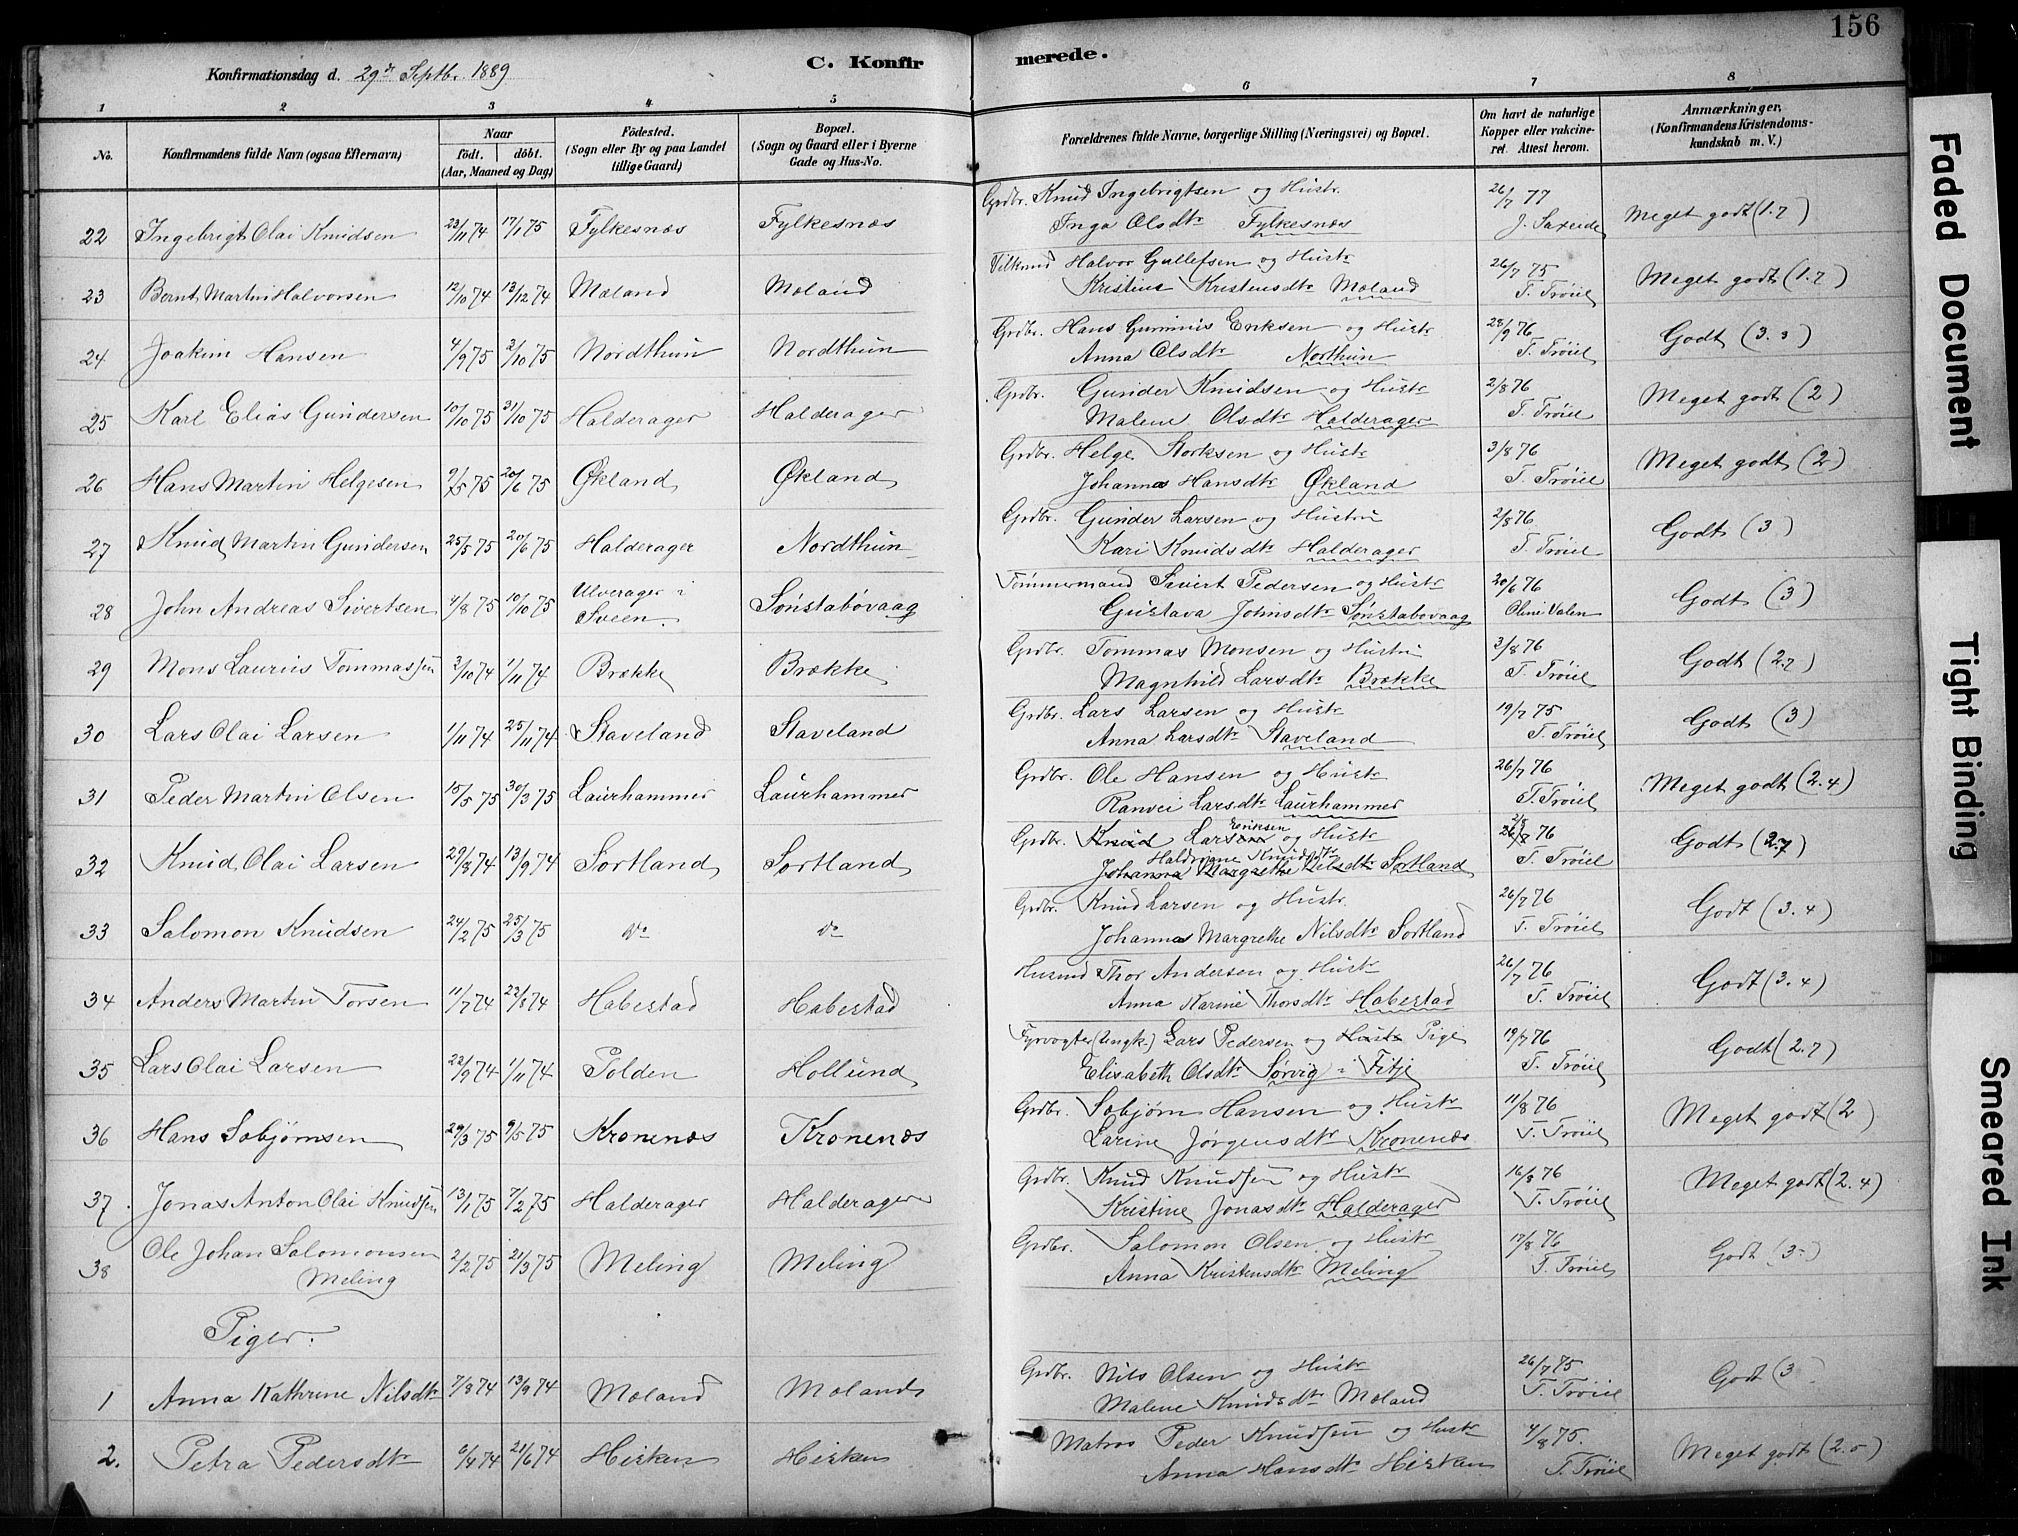 156
Konfirmationsdag d. 29de Septbr. 1889
C. Konfirmerede.
1 2 3 4 5 6 7 8
No.
Konfirmandens fulde Navn (ogsaa Efternavn)
Naar
født. døbt.
(Aar, Maaned og Dag)
Fødested.
(Sogn eller By og paa Landet tillige Gaard)
Bopæl.
(Sogn og Gaard eller i Byerne Gade og Hus-No.
Forældrenes fulde Navne, borgerlige Stilling (Næringsvei) og Bopæl.
Om havt de naturlige Kopper eller vakcineret. Attest herom.
Anmærkninger,
(Konfirmandens Kristendomskundskab m. V.)
22 Ingebrigt Olai Knudsen 23/11 74 17/1 75 Fylkesnæs Fylkesnæs Grdbr. Knud Ingebrigtsen og Hustr. 26/7 77 Meget godt (1.7)
Inga Olsdtr Fylkesnæs J. Saxeide
23 Bernt Martin Halvorsen 12/10 74 13/12 74 Mæland Mæland Halvor Gullefsen og Hustr 26/7 75 Meget godt (1.7)
Kristine Kristensdtr Mæland T. Trøiel
24 Joakim Hansen 4/9 75 3/10 75 Nordthun Nordthun Grdbr. Hans Gummus Eriksen og Hustr 28/9 76 Godt (3.3)
Anna Olsdtr Northun T. Trøiel
25 Karl Elias Gundersen 10/10 75 31/10 75 Halderager Halderager Grdbr. Gunder Knudsen og Hustr 2/8 76 Meget godt (2)
Malene Olsdtr Halderager T. Trøiel
26 Hans Martin Helgesen 9/5 75 20/6 75 Økland Økland Grdbr. Helge Storksen og Hustr 3/8 76 Meget godt (2)
Johanna Hansdtr Økland T. Trøiel
27 Knud Martin Gundersen 25/5 75 20/6 75 Halderager Nordthun Grdbr. Gunder Larsen og Hustru 2/8 76 Godt (3)
Kari Knudsdtr Halderager T. Trøiel
28 John Andreas Sivertsen 4/8 75 10/10 75 Ulverager i Sveen. Sønstabøvaag Tømmermand Sivert Pedersen og Hustr 20/6 76 Godt (3)
Gustava Johnsdtr Sønstabøvaag Oline Valen
29 Mons Laurius Tommassen 3/10 74 1/11 74 Brække Brække Grdbr. Tommas Monsen og Hustru 3/8 76 Godt (2.7)
Magnhild Larsdtr Brække T. Trøiel
30 Lars Olai Larsen 1/11 74 25/11 74 Staveland Staveland Grdbr. Lars Larsen og Hustr 19/7 75 Godt (3)
Anna Larsdtr Staveland T. Trøiel
31 Peder Martin Olsen 15/5 75 30/3 75 Laurhammer Laurhammer Grdbr. Ole Hansen og Hustr 26/7 76 Meget godt (2.4)
Ranvei Larsdtr Laurhammer T. Trøiel
32 Knud Olai Larsen 23/8 74 13/9 74 Sortland Sortland Grdbr. Knud Larsen Eriksen og Hustr 26/7 2/8 76 Godt (2.7)
Knudsdtr
Johanna Margrethe Nilsdtr Sortland T. Trøiel
33 Salomon Knudsen 24/2 75 25/3 75 do do Grdbr. Knud Larsen og Hustr. 26/7 76 Godt (3.4)
Johanna Margrethe Nilsdtr Sortland T. Trøiel
34 Anders Martin Torsen 11/7 74 23/8 74 Habestad Habestad Husmd Thor Andersen og Hustr 26/7 76 Godt (3.4)
Anna Karine Thorsdtr Habestad T. Trøiel
35 Lars Olai Larsen 22/9 74 1/11 74 Polden Hollund Fyrvogter (Ungk.) Lars Pedersen og Hustr Pige 19/7 76 Godt (2.7)
Elisabeth Olsdtr Sørvig i Fitje T. Trøiel
36 Hans Sobjørnsen 29/3 75 9/5 75 Kronenæs Kronenæs Grdbr. Sobjørn Hansen og Hustr 11/8 76 Meget godt (2)
Larine Jørgensdtr Kronenæs T. Trøiel
37. Jonas Anton Olai Knudsen 13/1 75 7/2 75 Halderager Halderager Grdbr. Knud Knudsen og Hustr 16/8 76 Meget godt (2.4)
Kristine Jonasdtr Halderager T. Trøiel
38 Ole Johan Salomonsen Meling 2/2 75 21/3 75 Meling Meling Grdbr. Salomon Olsen og Hustr 17/8 76 Godt (3.)
Anna Kristensdtr Meling T. Trøiel
Piger.
1 Anna Kathrine Nilsdtr 7/8 74 13/9 74 Mæland Mæland Grdbr. Nils Olsen og Hustr 26/7 75 Godt (3
Malene Knudsdtr Mæland T. Trøiel
2. Petra Pedersdtr 6/4 74 21/6 74 Hisken Hisken Matros Peder Knudsen og Hustr 4/8 75. Meget godt (2.5)
Anna Hansdtr Hisken T. Trøiel
Faded Document
Tight Binding
Smeared Ink